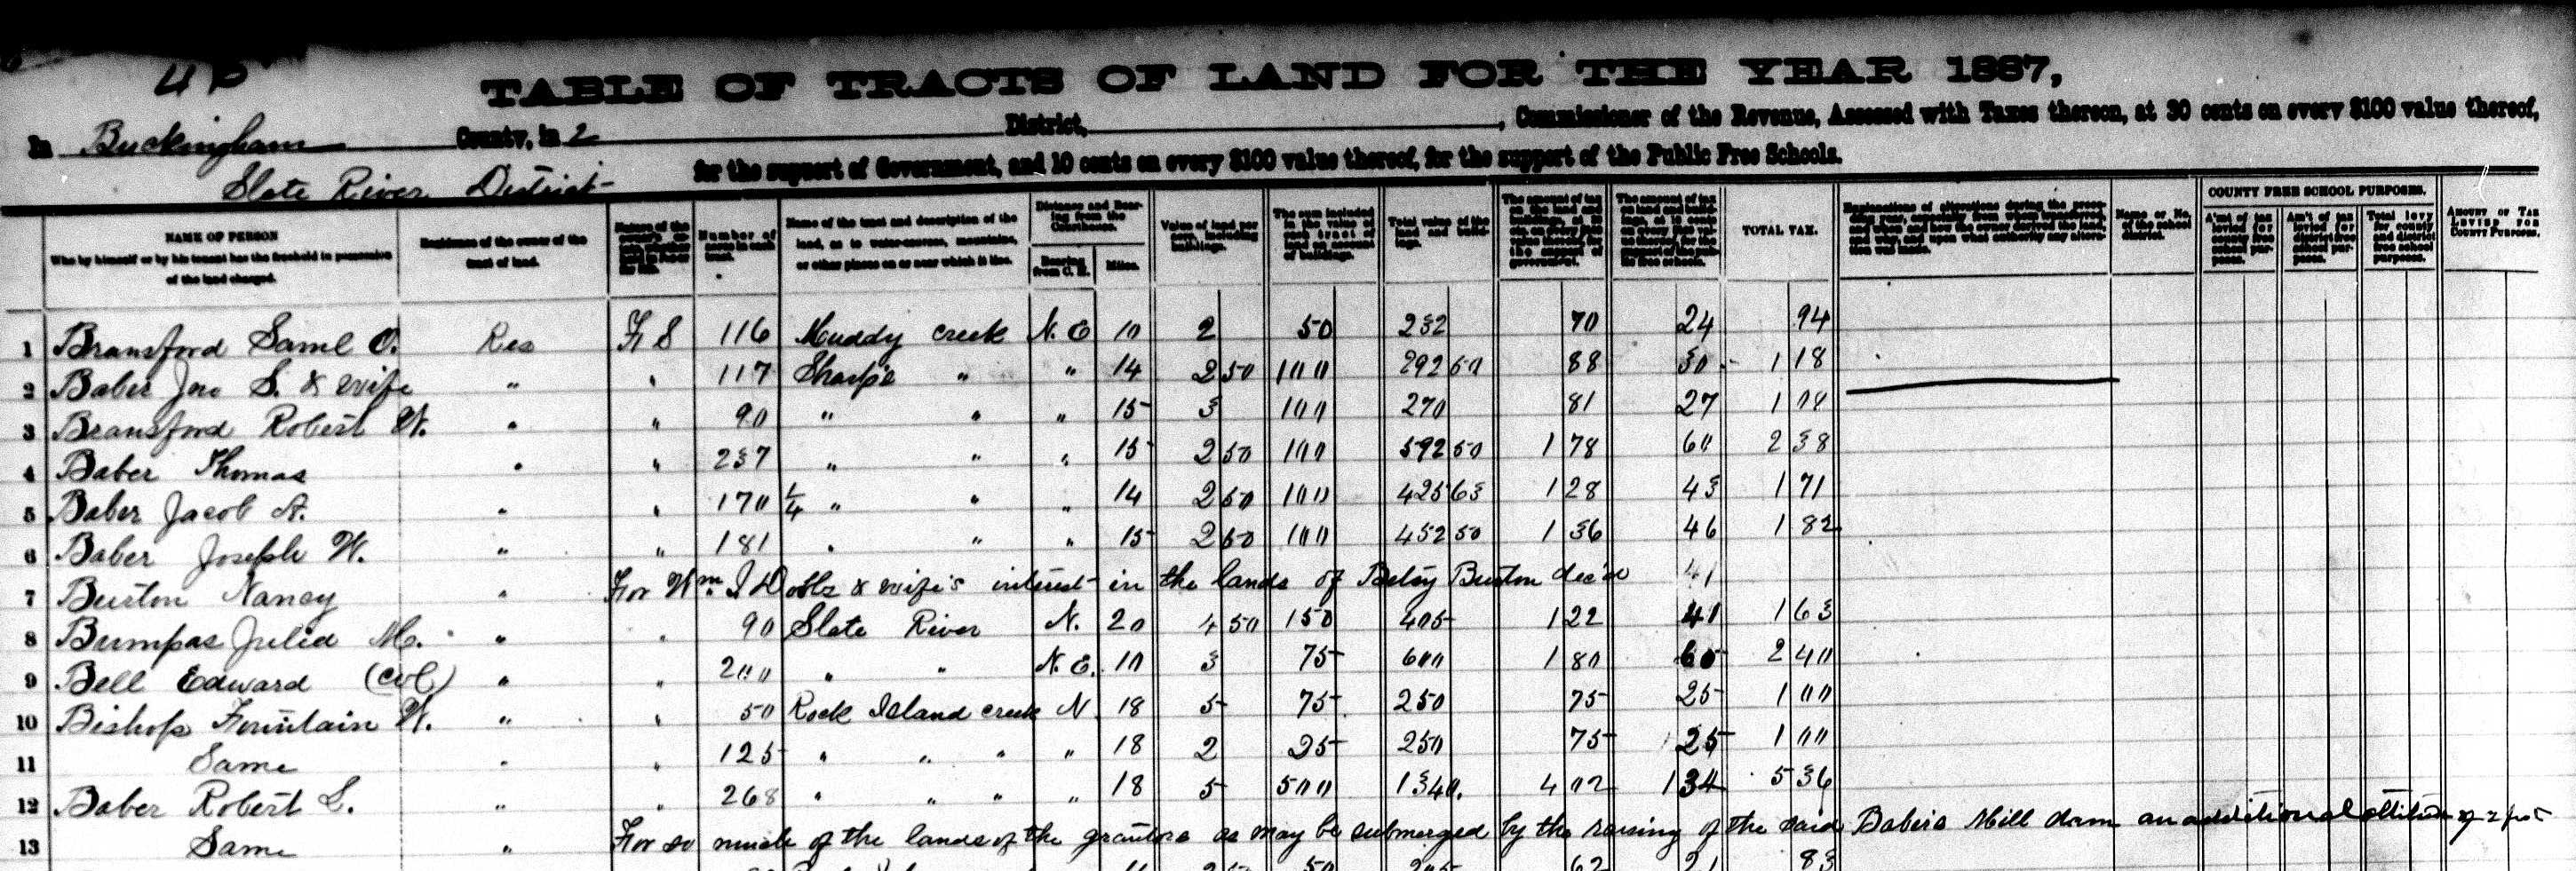 TABLE OF TRACTS OF LAND FOR THE YEAR 1887,
In Buckingham County, in 2 District, , Commissioner of the Revenue, Assessed with Taxes thereon, at 30 cents on every $100 value thereof,
Slate River District for the support of Government, and 10 cents on every $100 value thereof, for the support of the Public Free Schools.
NAME OF PERSON
Who by himself or by his tenant has the freehold in possession of the land charged.
Residence of the owner of the tract of land.
Number of acres in each tract.
Name of the tract and description of the land, as to water-courses, mountains, or other places on or near which it lies.
Distance and Bearing from the Courthouse.
Bearing from C. H.
Miles.
Value of land per acre, including buildings.
The sum included in the value of the tract of land on account of buildings.
Total value of the land and buildings.
TOTAL TAX.
Name or No. of the school district.
COUNTY FREE SCHOOL PURPOSES.
Total levy for county and district free school purposes.
AMOUNT OF TAX LEVIED FOR COUNTY PURPOSES.
1 Bransford Saml O. Res F S 116 Muddy creek N. E 10 2 50 232 70 24 94
2 Baber Jno S. & wife " " 117 Sharp's " " 14 2 50 100 292 50 88 30 1 18
3 Bransford Robert W. " " 90 " " " 15 3 100 270 81 27 1 08
4 Baber Thomas " " 237 " " " 15 2 50 100 592 50 1 78 60 2 38
5 Baber Jacob A. " " 170 1/4 " " " 14 2 50 100 425 63 1 28 43 1 71
6 Baber Joseph W. " " 181 " " " 15 2 50 100 452 50 1 36 46 1 82
7 Burton Nancy " For Wm. J Dobbs & wife's interest in the lands of Betsy Burton dec'd 41
8 Bumpas Julia M. " " 90 Slate River N. 20 4 50 150 405 1 22 41 1 63
9 Bell Edward (Col) " " 200 " " N. E. 10 3 75 600 1 80 60 2 40
10 Bishop Fountain W. " " 50 Rock Island creek N 18 5 75 250 75 25 1 00
11 Same " " 125 " " " " 18 2 25 250 75 25 1 00
12 Baber Robert L. " " 268 " " " " 18 5 500 1340. 4 02 1 34 5 36
13 Same " For so much of the lands of the grantors as may be submerged by the raising of the said Baber's Mill dam an additional altitude of 2 feet
50 62 21 83